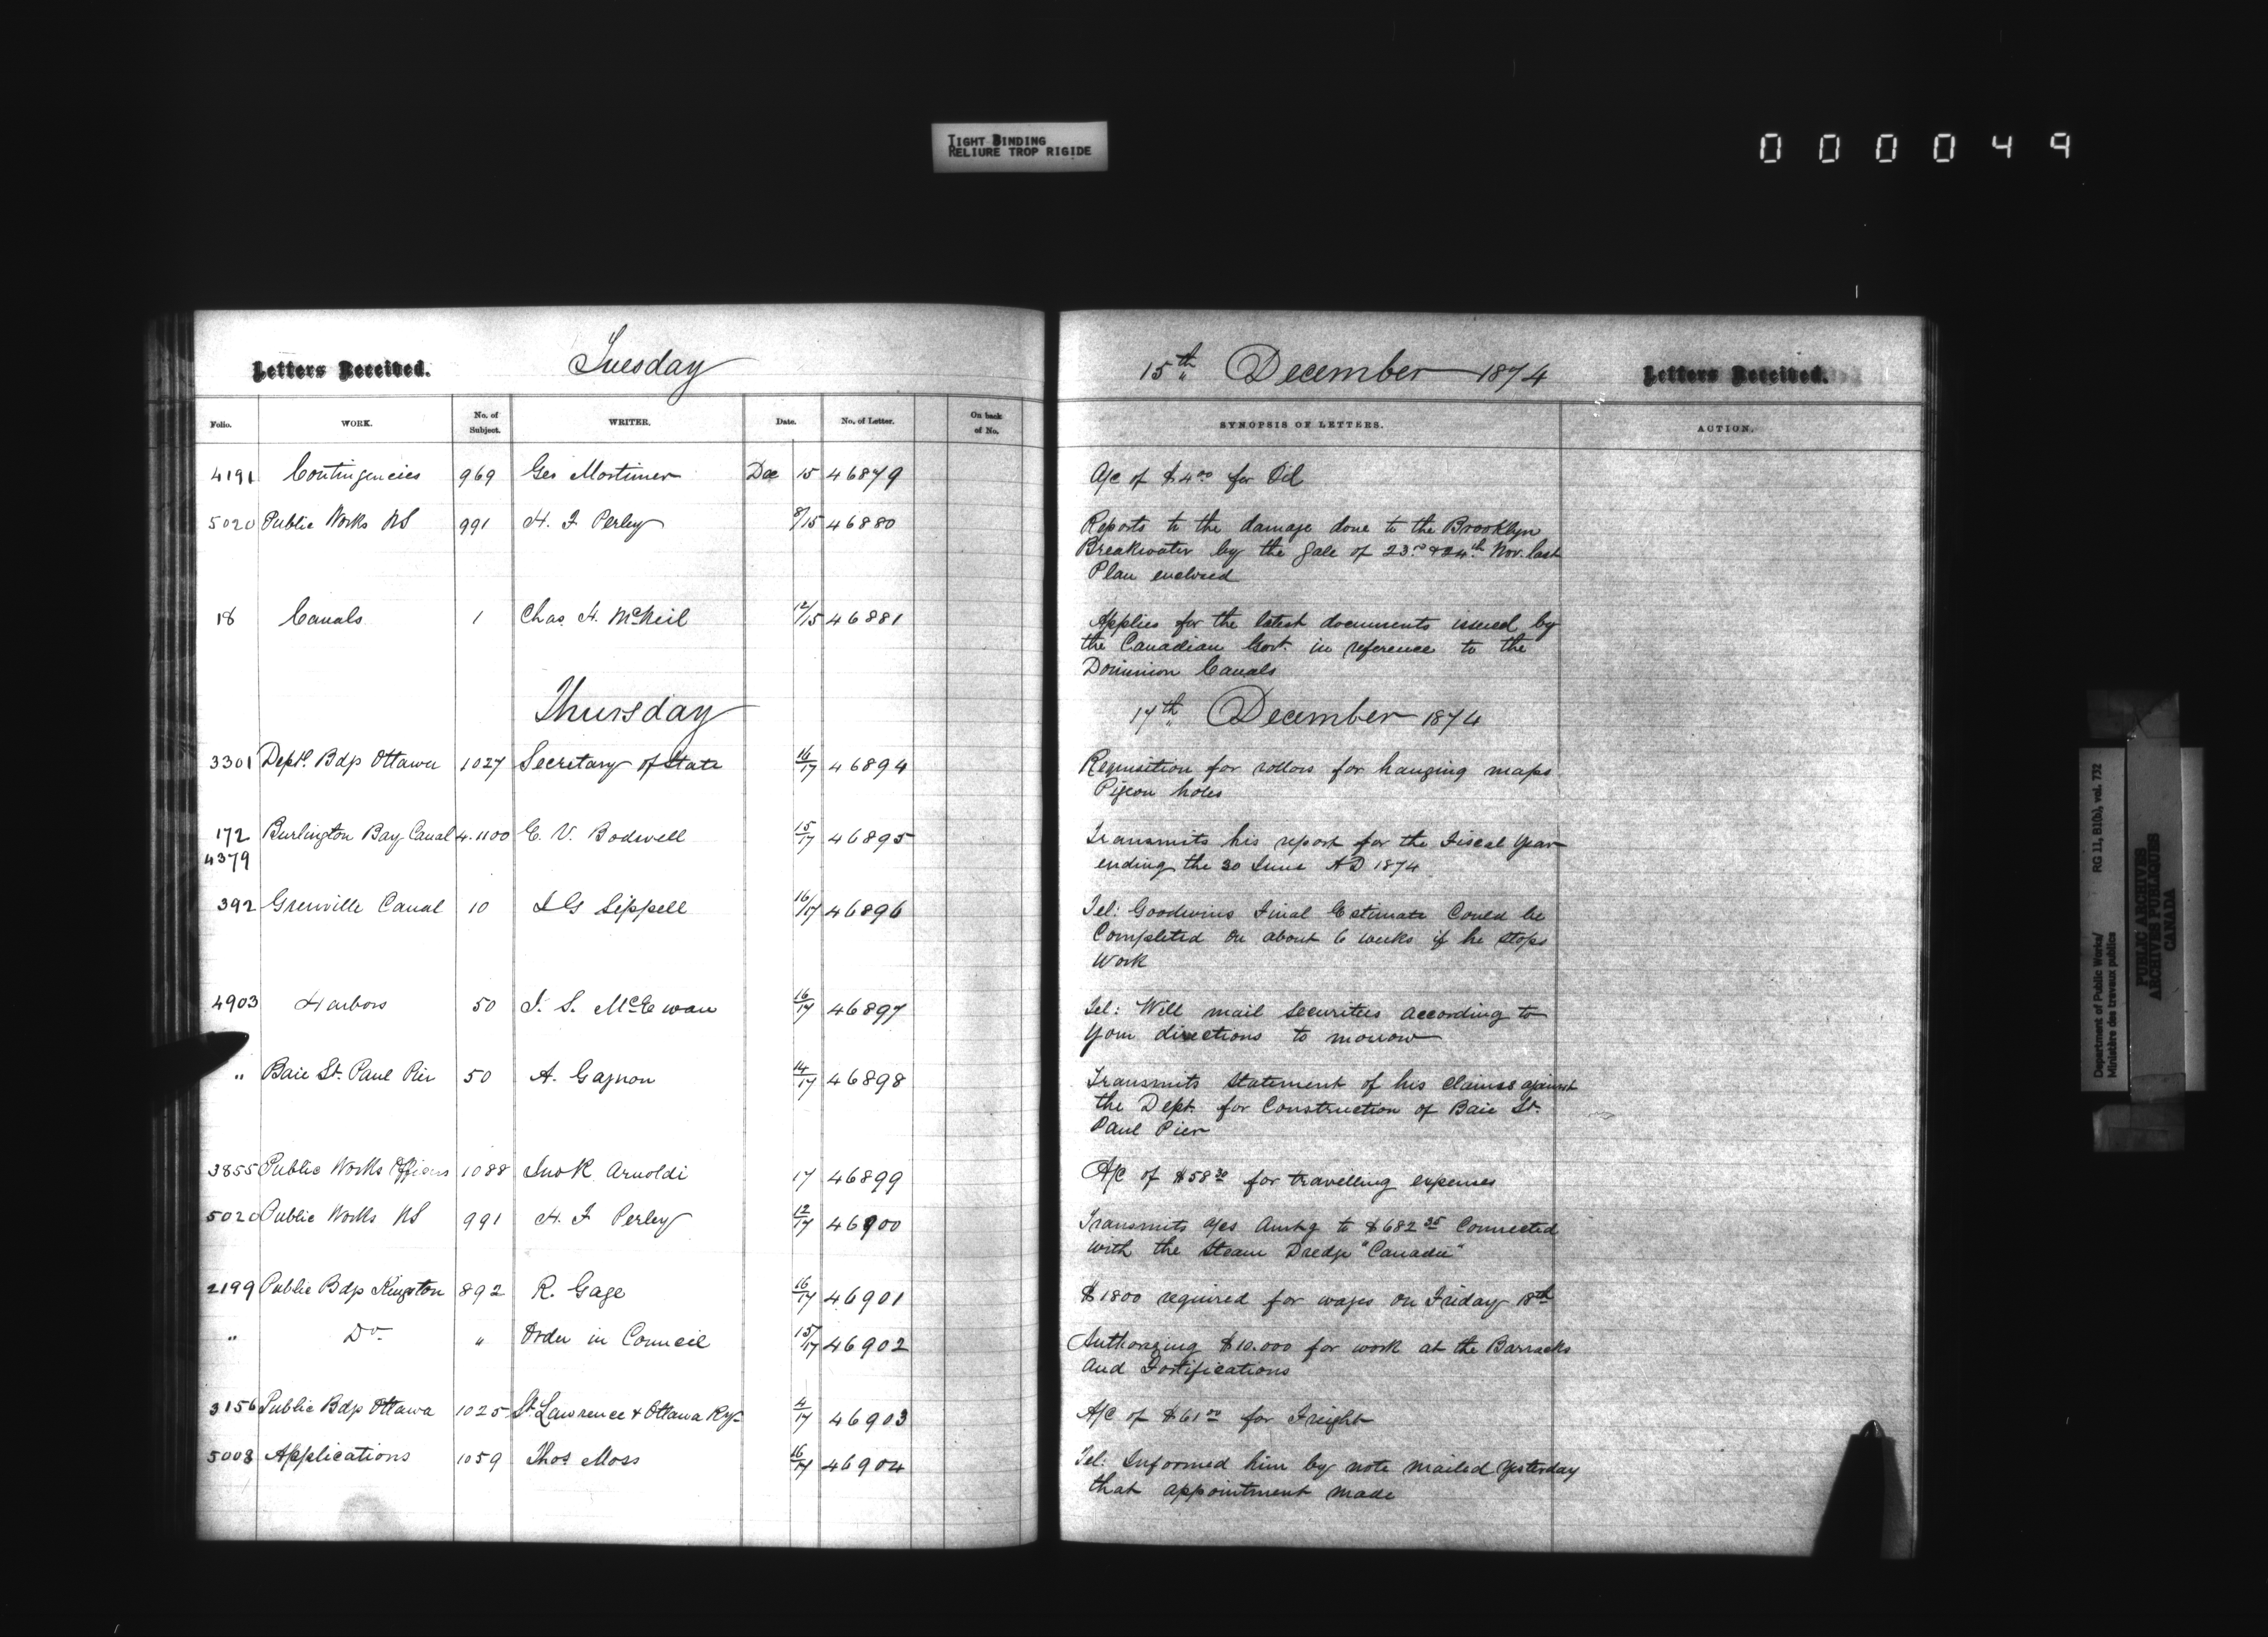 TIGHT BINDING
RELIURE TROP RIGIDE
000049
Letters Received. Tuesday 15th December 1874 Letters Received.
Folio. WORK. No. of Subject. WRITER. Date. No. of Letter. On back of No. SYNOPSIS OF LETTERS. ACTION.
4191 Contingencies 969 Geo Mortimer Dec 15 46879 A/c of $4.00 for Oil
5020 Public Works NS 991 H. F Perley 8/15 46880 Reports to the damage done to the Brooklyn
Breakwater by the gale of 23rd & 24th Nov. last
Plan enclosed
18 Canals 1 Chas H. McNeil 12/15 46881 Applies for the latest documents issued by
the Canadian Govt. in reference to the
Dominion Canals
Thursday 17th December 1874
3301 Deptl. Bdgs Ottawa 1027 Secretary of State 16/17 46894 Requisition for rollers for hanging maps
Pigeon holes
172 Burlington Bay Canal 4.1100 E. V. Bodwell 15/17 46895 Transmits his report for the Fiscal Year
4379 ending the 30 June AD 1874
392 Grenville Canal 10 J G Sippell 16/17 46896 Tel: Goodwins Final Estimate Could be
Completed in about 6 weeks if he stops
Work
4903 Harbors 50 J. S. McEwan 16/17 46897 Tel: Will mail Securities according to
your directions to morrow
" Baie St. Paul Pier 50 A. Gagnon 14/17 46898 Transmits Statement of his claims against
the Dept. for Construction of Baie St.
Paul Pier
3855 Public Works Officers 1088 Jno R Arnoldi 17 46899 A/C of $58 30 for travelling expenses
5020 Public Works NS 991 H. F Perley 12/17 46900 Transmits a/cs Amtg to $682 35 Connected
with the Steam Dredge "Canada"
2199 Public Bdgs Kingston 892 R. Gage 16/17 46901 $1800 required for wages on Friday 18th
" Do " Order in Council 15/17 46902 Authorizing $10.000 for work at the Barracks
and Fortifications
3156 Public Bdgs Ottawa 1025 St. Lawrence & Ottawa Ry 4/17 46903 A/C of $61 00 for Freight
5003 Applications 1059 Thos Moss 16/17 46904 Tel: Informed him by note mailed Yesterday
that appointment made
Department of Public Works/ RG 11, B1(b), vol. 732
Ministère des travaux publics
PUBLIC ARCHIVES
ARCHIVES PUBLIQUES
CANADA